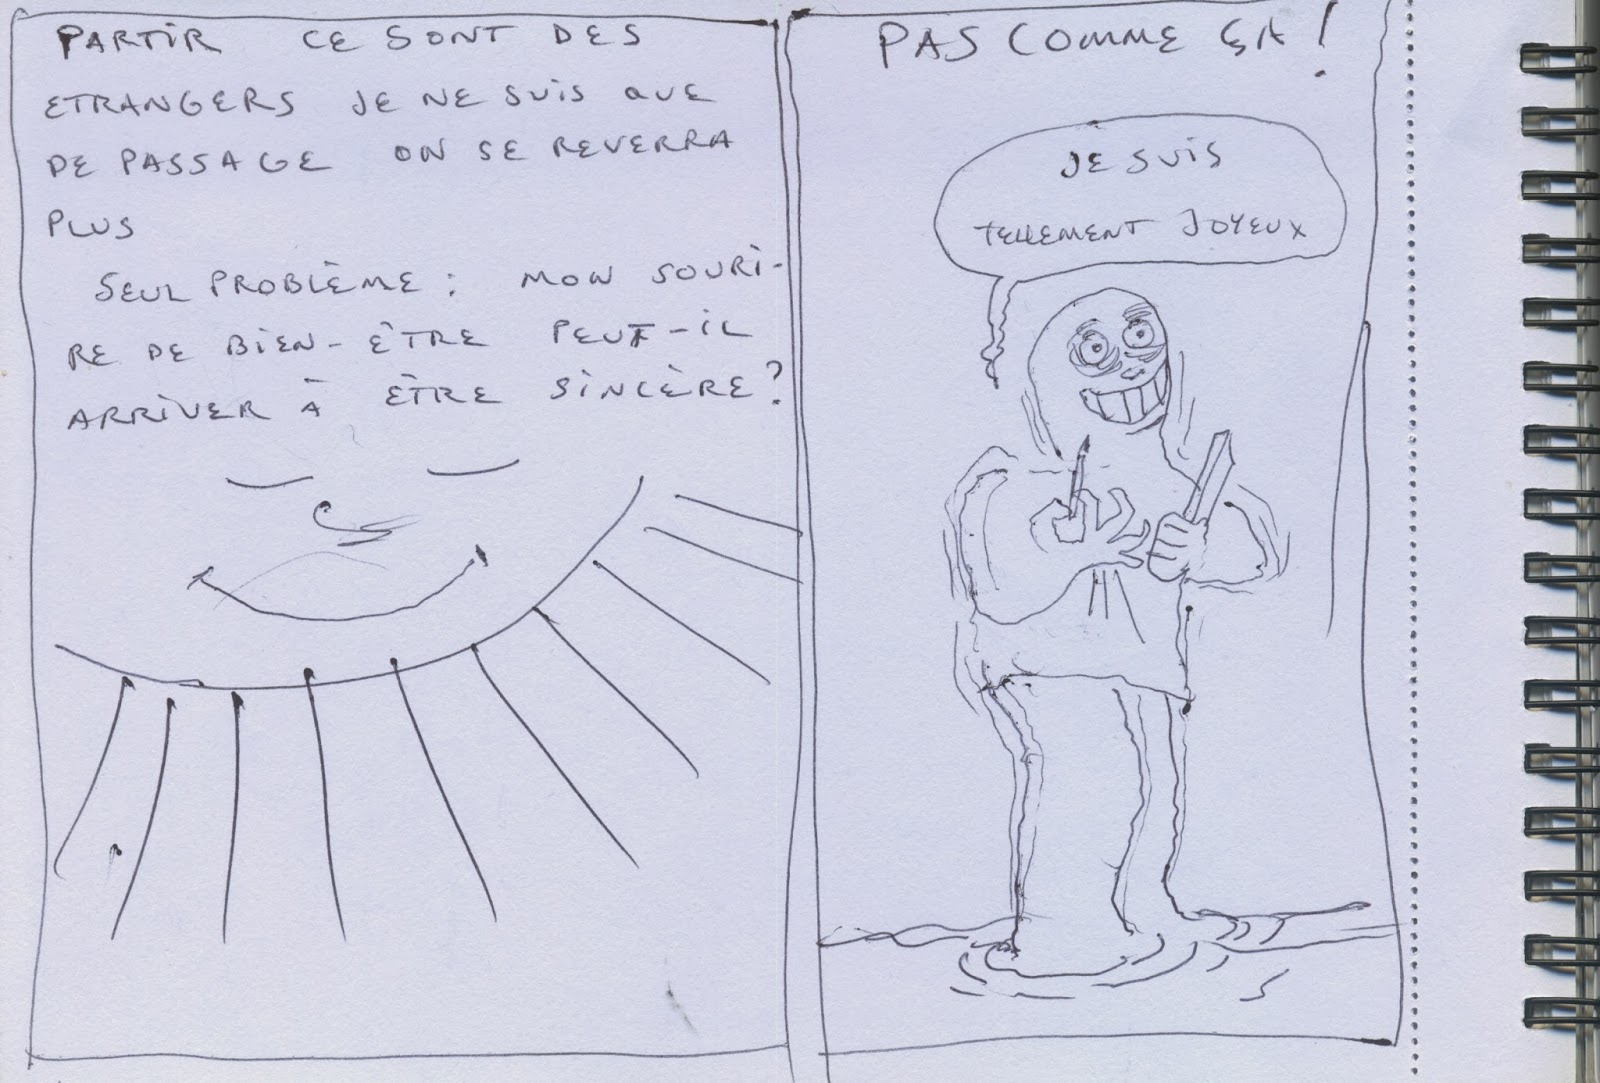 PARTIR CE SONT DES
ETRANGERS JE NE SUIS QUE
DE PASSAGE ON SE REVERRA
PLUS
SEUL PROBLÈME : MON SOURI-
RE DE BIEN-ÊTRE PEUT-IL
ARRIVER À ÊTRE SINCÈRE ?
PAS COMME ÇA !
JE SUIS
TELLEMENT JOYEUX